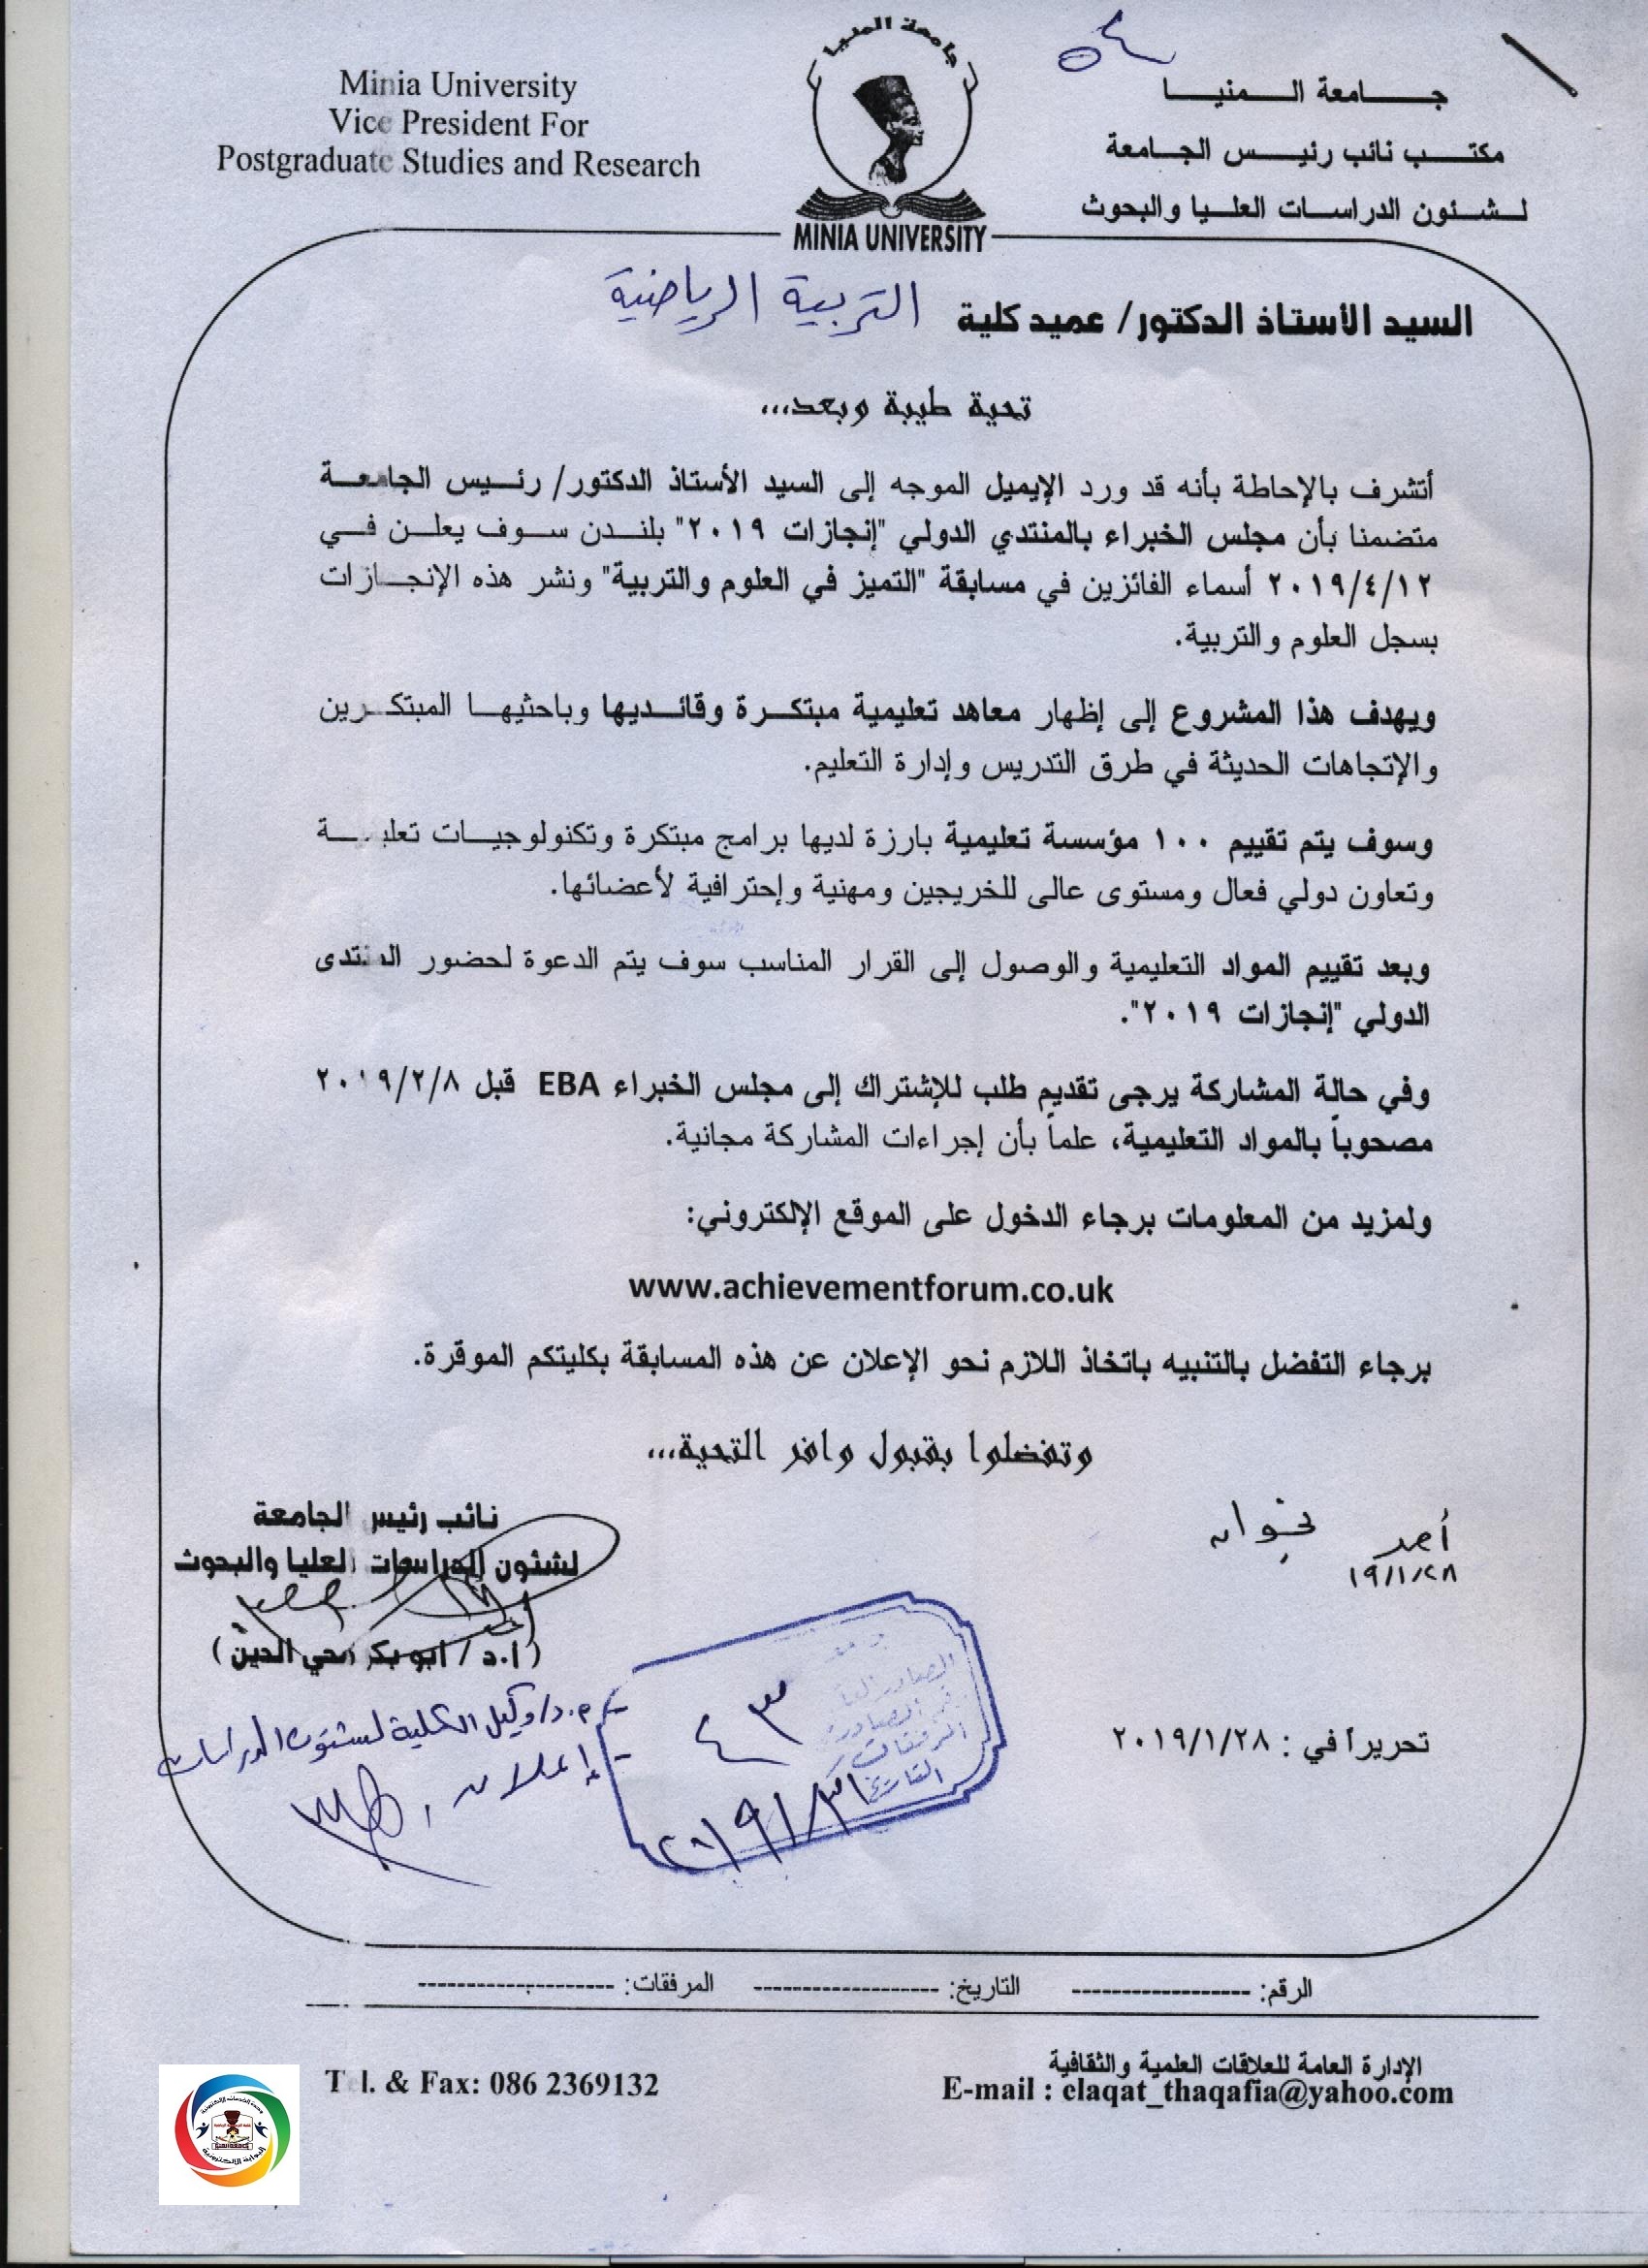 Minia University
Vice President For
Postgraduate Studies and Research
جامعة المنيا
MINIA UNIVERSITY
جامعة المنيا
مكتب نائب رئيس الجامعة
لشئون الدراسات العليا والبحوث
السيد الأستاذ الدكتور/ عميد كلية التربية الرياضية
تحية طيبة وبعد...
أتشرف بالإحاطة بأنه قد ورد الإيميل الموجه إلى السيد الأستاذ الدكتور/ رئيس الجامعة
متضمنا بأن مجلس الخبراء بالمنتدي الدولي "إنجازات ٢٠١٩" بلندن سوف يعلن في
٢٠١٩/٤/١٢ أسماء الفائزين في مسابقة "التميز في العلوم والتربية" ونشر هذه الإنجازات
بسجل العلوم والتربية.
ويهدف هذا المشروع إلى إظهار معاهد تعليمية مبتكرة وقائديها وباحثيها المبتكرين
والإتجاهات الحديثة في طرق التدريس وإدارة التعليم.
وسوف يتم تقييم ١٠٠ مؤسسة تعليمية بارزة لديها برامج مبتكرة وتكنولوجيات تعليمية
وتعاون دولي فعال ومستوى عالى للخريجين ومهنية وإحترافية لأعضائها.
وبعد تقييم المواد التعليمية والوصول إلى القرار المناسب سوف يتم الدعوة لحضور المنتدى
الدولي "إنجازات ٢٠١٩".
وفي حالة المشاركة يرجى تقديم طلب للإشتراك إلى مجلس الخبراء EBA قبل ٢٠١٩/٢/٨
مصحوباً بالمواد التعليمية، علماً بأن إجراءات المشاركة مجانية.
ولمزيد من المعلومات برجاء الدخول على الموقع الإلكتروني:
www.achievementforum.co.uk
برجاء التفضل بالتنبيه باتخاذ اللازم نحو الإعلان عن هذه المسابقة بكليتكم الموقرة.
وتفضلوا بقبول وافر التحية...
نائب رئيس الجامعة
لشئون الدراسات العليا والبحوث
(أ.د / أبو بكر محي الدين)
أحمد
١٩/١/٢٨
وكيل الكلية لشئون الدراسات
إعلان
٤٣
التاريخ
٢٠١٩/١/٣١
تحريرأ في : ٢٠١٩/١/٢٨
الرقم: ------------------ التاريخ: ------------------- المرفقات: --------------------
الإدارة العامة للعلاقات العلمية والثقافية
Tel. & Fax: 086 2369132
E-mail : elaqat_thaqafia@yahoo.com